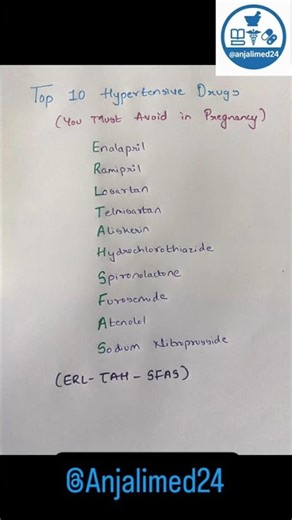 @anjalimed24
Top 10 Hypertensive Drugs
(You Must Avoid in Pregnancy)
Enalapril
Ramipril
Losartan
Telmisartan
Aliskerin
Hydrochlorothiazide
Spironolactone
Furosemide
Atenolol
Sodium Nitroprusside
(ERL-TAH-SFAS)
@Anjalimed24